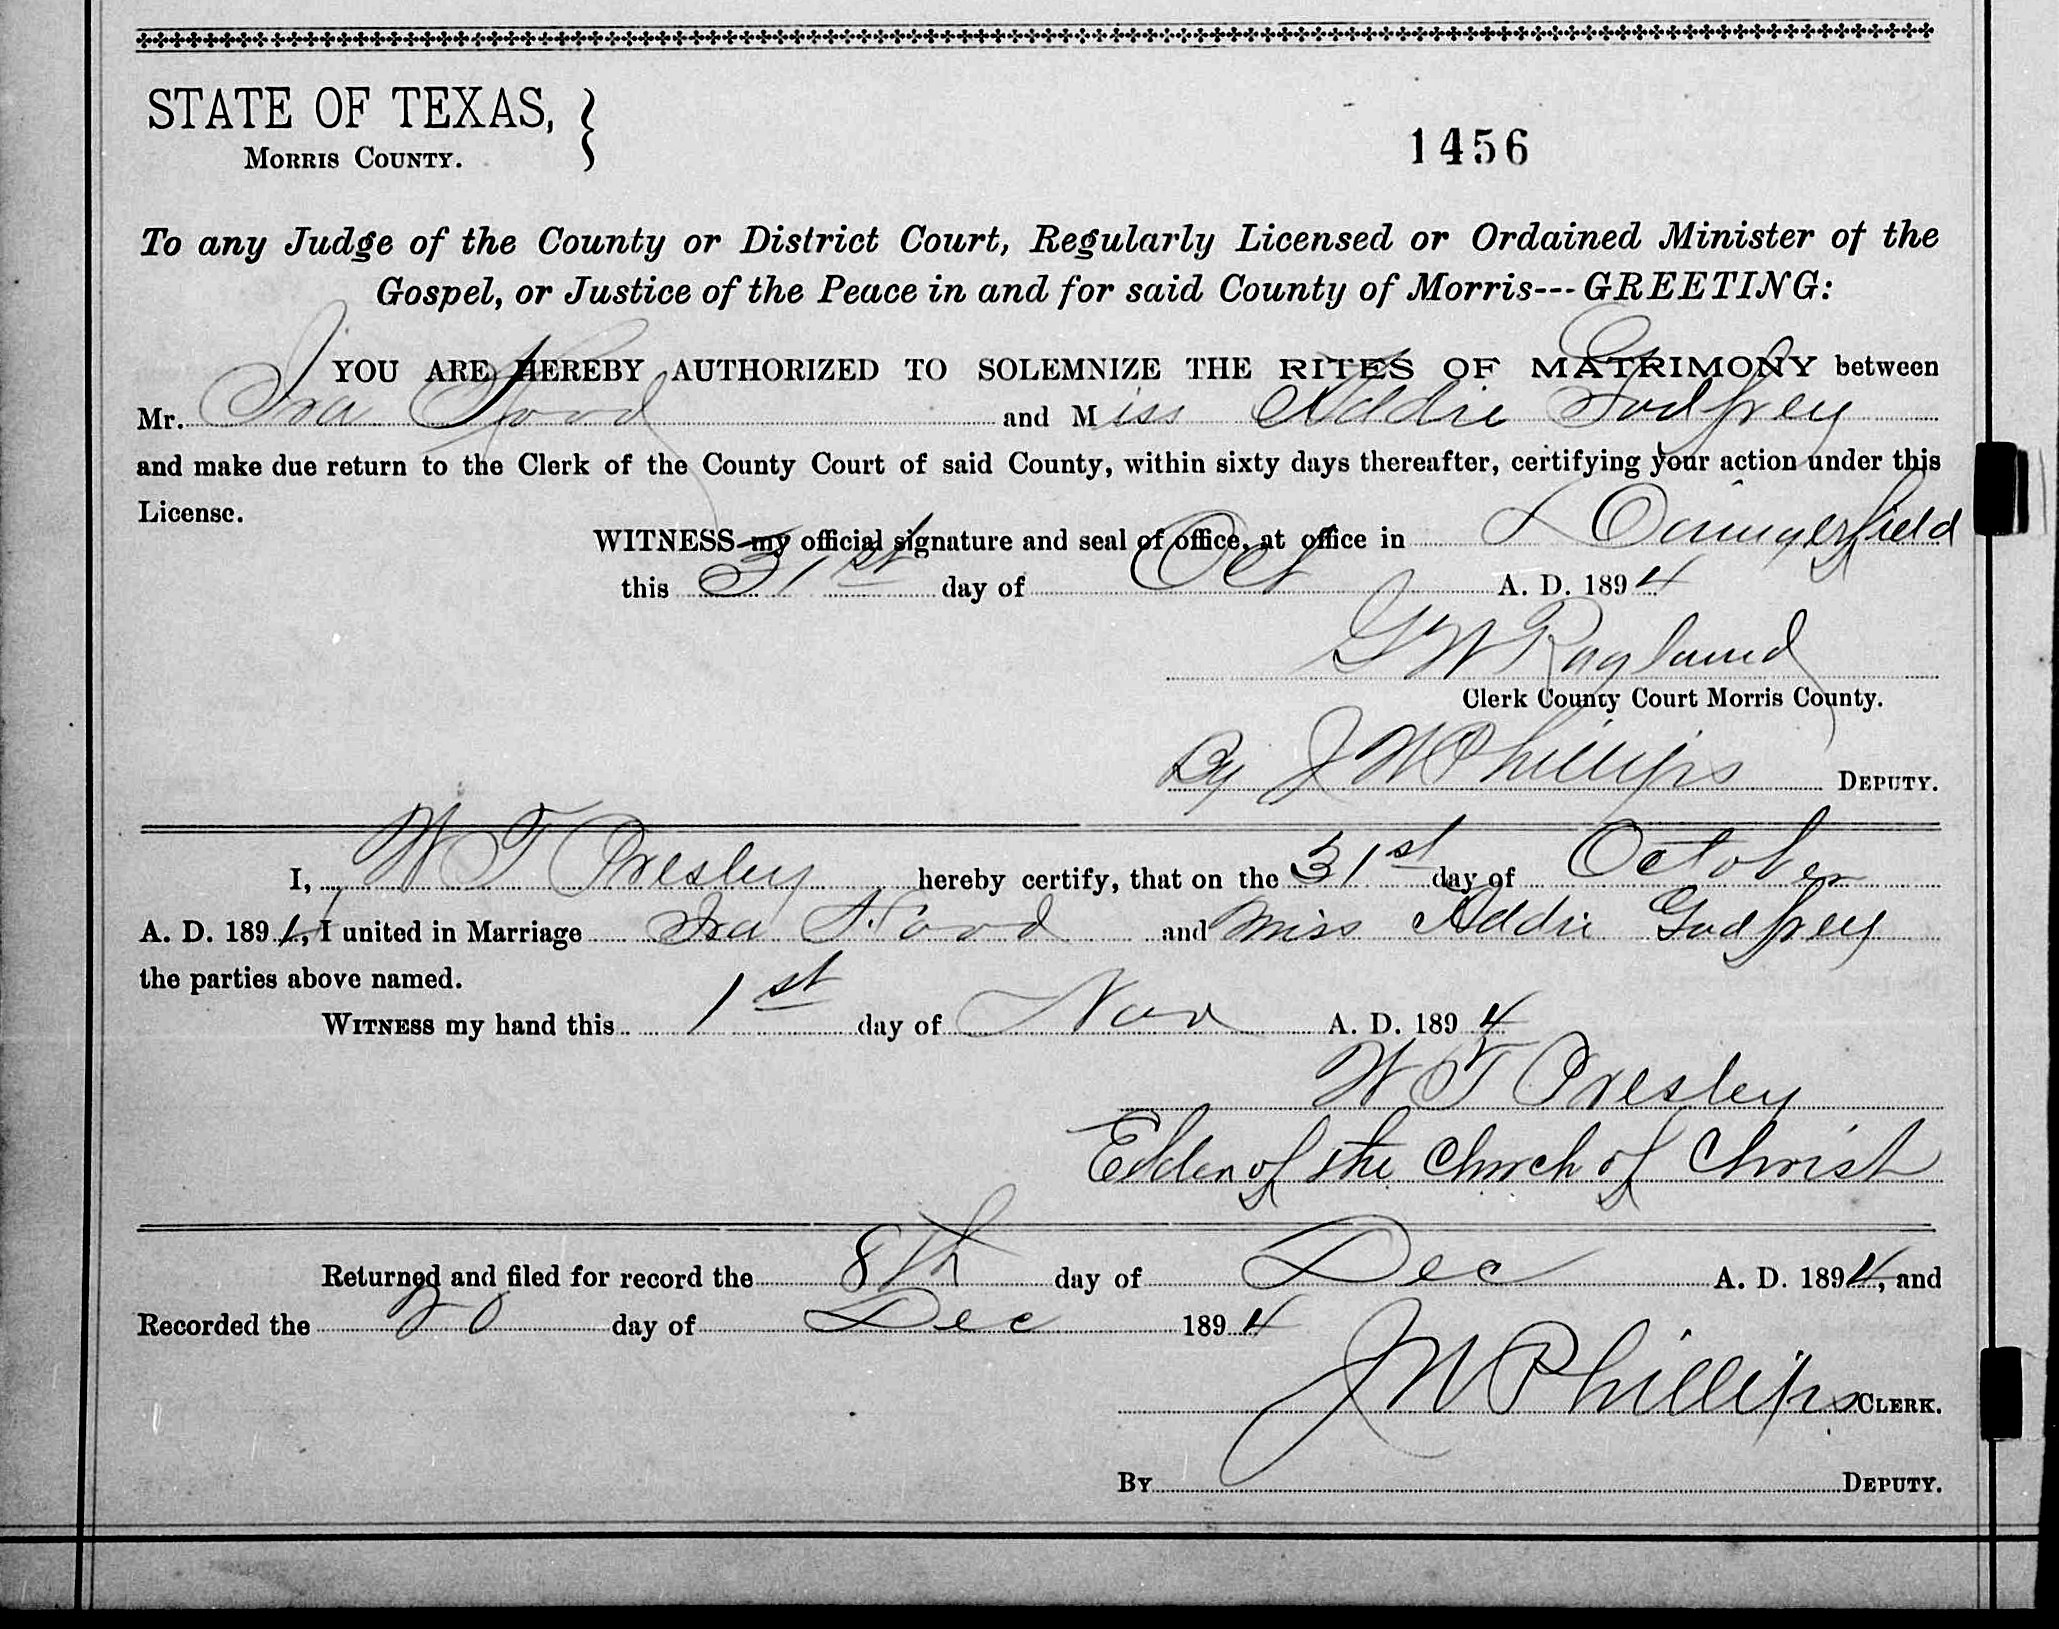 STATE OF TEXAS,
MORRIS COUNTY.
1456
To any Judge of the County or District Court, Regularly Licensed or Ordained Minister of the
Gospel, or Justice of the Peace in and for said County of Morris---GREETING:
YOU ARE HEREBY AUTHORIZED TO SOLEMNIZE THE RITES OF MATRIMONY between
Mr. Ira Hood and Miss Addie Godfrey
and make due return to the Clerk of the County Court of said County, within sixty days thereafter, certifying your action under this
License.
WITNESS my official signature and seal of office, at office in Daingerfield
this 31st day of Oct A. D. 1894
G W Ragland
Clerk County Court Morris County.
By J W Phillips DEPUTY.
I, W T Presley hereby certify, that on the 31st day of October
A. D. 1894, I united in Marriage Ira Hood and Miss Addie Godfrey
the parties above named.
WITNESS my hand this 1st day of Nov A. D. 1894
W T Presley
Elder of the Church of Christ
Returned and filed for record the 8th day of Dec A. D. 1894, and
Recorded the 20 day of Dec 1894
J W Phillips CLERK.
BY DEPUTY.